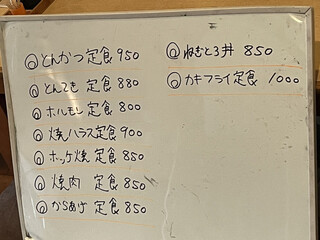 とんかつ定食 950
とんてき 定食 880
ホルモン 定食 800
焼ハラス定食 900
ホッケ焼 定食 850
焼肉 定食 850
からあげ 定食 850
ねぎとろ丼 850
カキフライ定食 1000